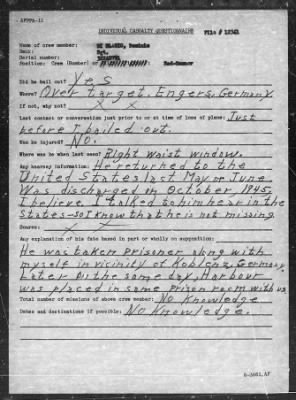 AFPPA-11
INDIVIDUAL CASUALTY QUESTIONNAIRE File # 12341
Name of crew member: DE BLASIO, Dominic
Rank: Sgt.
Serial number:
Position: Crew (Bomber) or
Did he bail out? Yes
Where? Over target. Engers, Germany.
If not, why not? X X
Last contact or conversation just prior to or at time of loss of plane: Just
before I bailed out.
Was he injured? No.
Where was he when last seen? Right waist window.
Any hearsay information: He returned to the
United States last May or June.
Was discharged on October, 1945,
I believe. I talked to him hear in the
States - so I know that he is not missing.
Source: X X
Any explanation of his fate based in part or wholly on supposition:
He was taken prisoner along with
myself in vicinity of Koblenz, Germany
Later on the same day, Harbour
was placed in same prison room with us
Total number of missions of above crew member: No Knowledge
Dates and destinations if possible: No Knowledge.
6-3861,AF